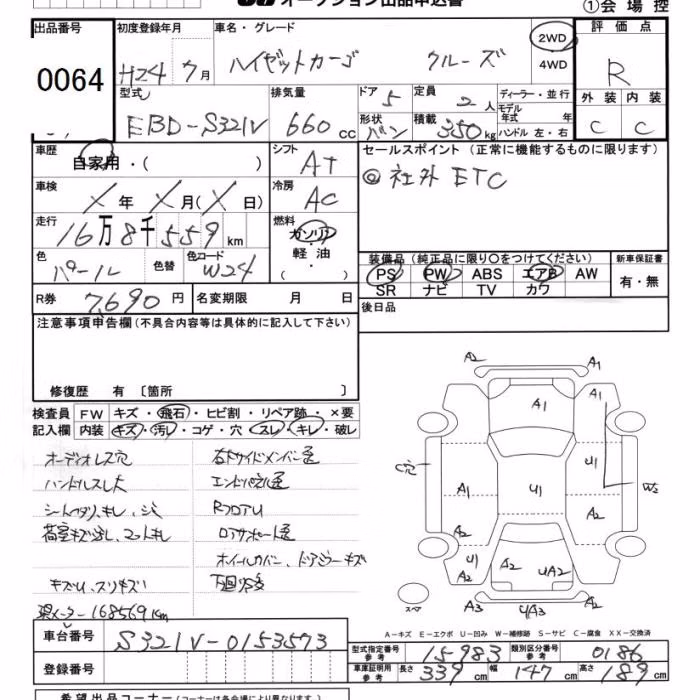 オークション出品申込書
①会場控
出品番号 初度登録年月 車名・グレード 評価点
0064 H24 ク月 ハイゼットカーゴ クルーズ 2WD 4WD R
型式 排気量 ドア 定員 ディーラー・並行 外装 内装
EBD-S321V 660cc 5 2人 モデル年式 年
形状 バン 積載 350kg ハンドル 左・右 C C
車歴 自家用・( ) シフト AT セールスポイント (正常に機能するものに限ります)
車検 X年X月(X日) 冷房 AC ◎社外 ETC
走行 16万8千559km 燃料 ガソリン・軽油 ( )
色 パール 色替 色コード W24 装備品(純正品に限り○をつけてください) 新車保証書
PS PW ABS エアB AW 有・無
SR ナビ TV カワ
R券 7,690円 名変期限 月 日 後日品
注意事項申告欄(不具合内容等は具体的に記入して下さい)
修復歴 有 〔箇所 〕
検査員記入欄 FW キズ・飛石・ヒビ割・リペア跡・×要
内装 キズ・汚レ・コゲ・穴・スレ・キレ・破レ
オーディオレス穴
ハンドルスレ大
キズU、スリキズ
現メーター168569km
A2 A1
A1
C穴 U1 W2
A1 U1
A2 A2
U1 A2 A2 UA2 U1 A2
スペア A3 UA2 A3
A-キズ E-エクボ U-凹み W-補修跡 S-サビ C-腐食 XX-交換済
車台番号 S321V-0153573
型式指定番号 参考 15983 類別区分番号 参考 0186
登録番号 車庫証明用 参考 長さ 339cm 幅 147cm 高さ 189cm
希望出品コーナー (コーナーは各会場により異なります)